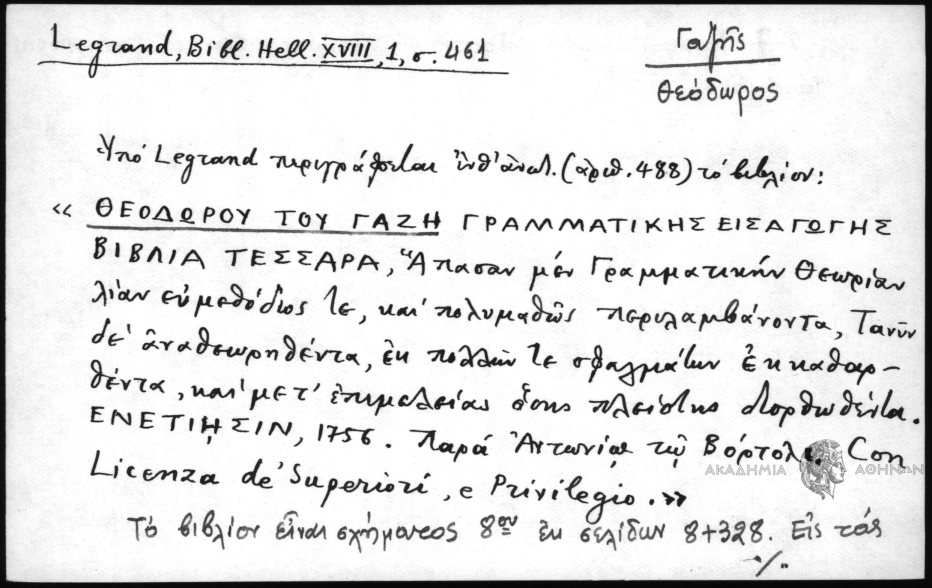 Legrand, Bibl. Hell. XVIII, 1, σ. 461
Γαζῆς
Θεόδωρος
Ὑπό Legrand περιγράφεται ὑπ' ἀριθ. (ἀριθ. 488) τό βιβλίον:
« ΘΕΟΔΩΡΟΥ ΤΟΥ ΓΑΖΗ ΓΡΑΜΜΑΤΙΚΗΣ ΕΙΣΑΓΩΓΗΣ
ΒΙΒΛΙΑ ΤΕΣΣΑΡΑ, Ἅπασαν μέν Γραμματικήν Θεωρίαν
λίαν εὐμεθόδως τε, καί πολυμαθῶς περιλαμβάνοντα, Τανῦν
δέ ἀναθεωρηθέντα, ἐκ πολλῶν τε σφαλμάτων ἐκκαθαρ-
θέντα, καί μετ' ἐπιμελείας ὅσης πλείστης διορθωθέντα.
ΕΝΕΤΙῌΣΙΝ, 1756. Παρά Ἀντωνίῳ τῷ Βόρτολι. Con
Licenza de' Superiori, e Privilegio.»
ΑΚΑΔΗΜΙΑ ΑΘΗΝΩΝ
Τό βιβλίον εἶναι σχήματος 8ου ἐκ σελίδων 8+328. Εἰς τάς
./.